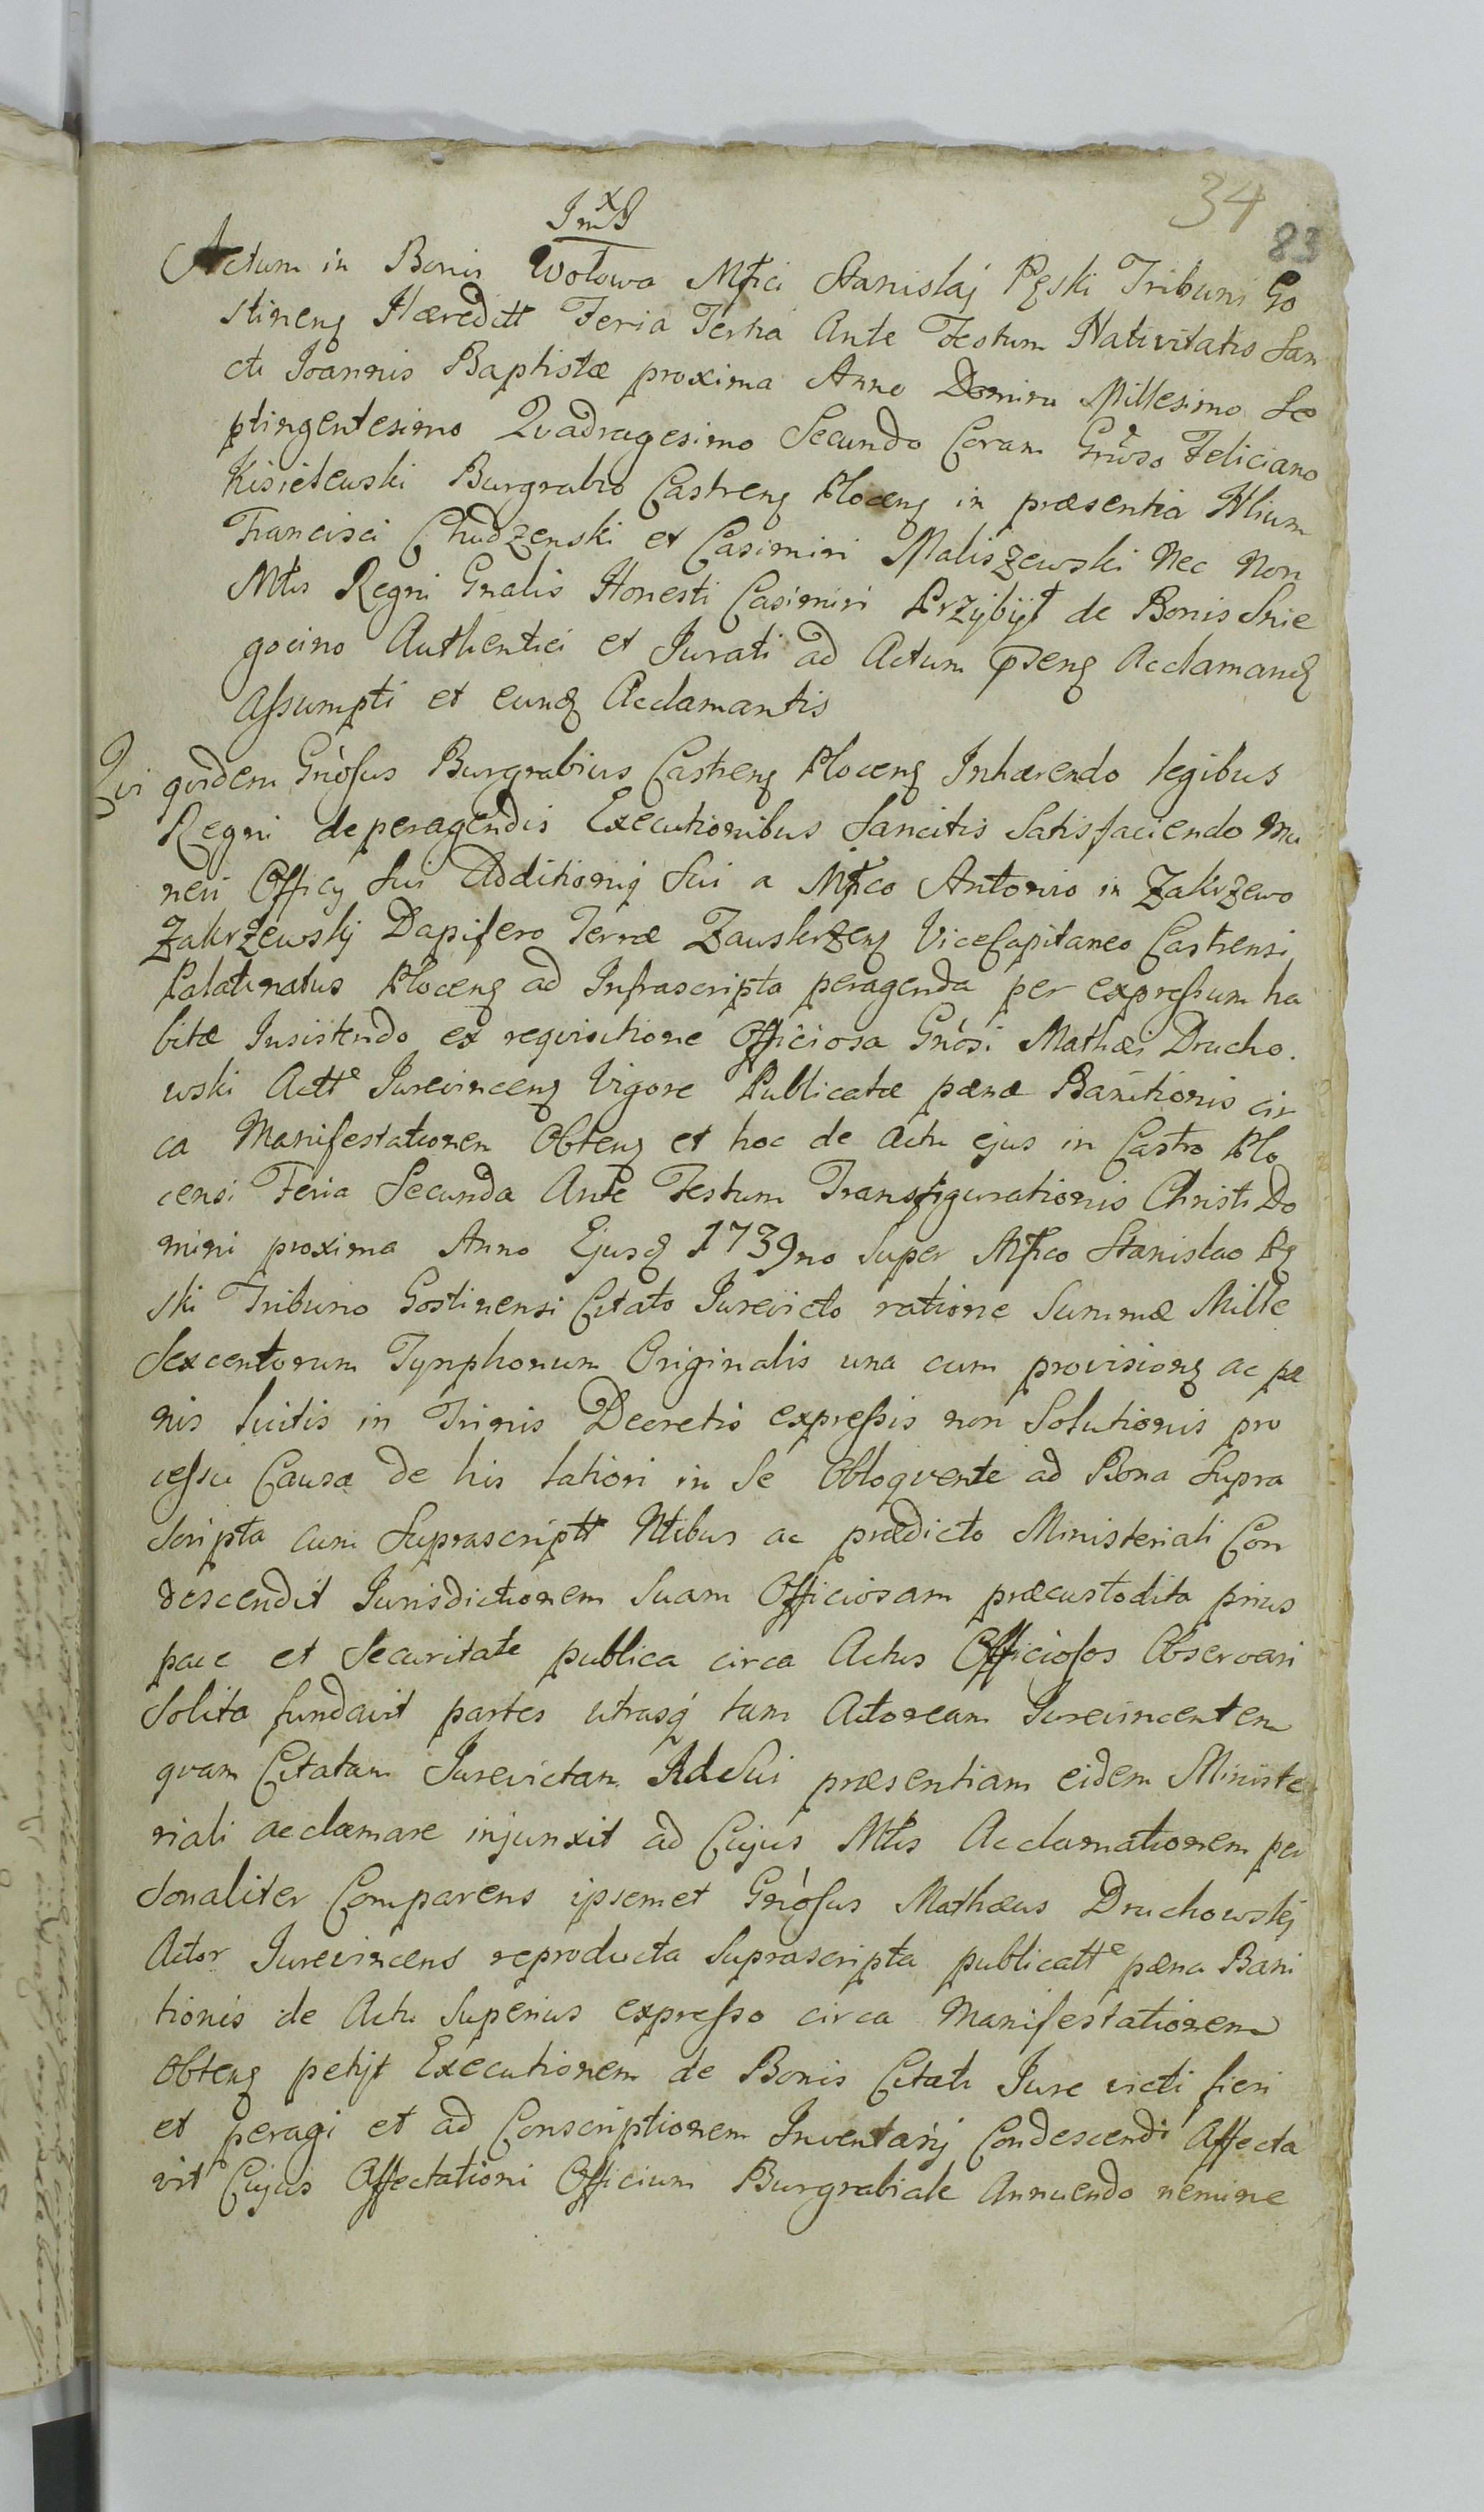 34
83
Actum in Bonis Wołowa Mfici Stanislaj Pęski Tribuni Go
stinenς Hæreditt Feria Tertia Ante Festum Nativitatis San
cti Joannis Baptistæ proxima Anno Domini Millesimo Se
ptingentesimo Qvadragesimo Secundo Coram Gnoso Feliciano
Kisielewski Burgrabio Castrenς Plocenς in præsentia Nlium
Francisci Chudzenski et Casimiri Maliszewski Nec Non
Mtlis Regni Gnalis Honesti Casimiri Przybyt de Bonis Snie
gocino Authentici et Jurati ad Actum pñsenς Acclamandς
assumpti et eundς Acclamantis
Qvi qvidem Gnosus Burgrabius Castrenς Plocenς Inhærendo legibus
Regni de peragendis Executionibus Sancitis Satisfaciendo Mu
neri Officij Sui Additioniq Sui a Mfico Antonio in Zakrzewo
Zakrzewskj Dapifero Terræ Zawskrzenς ViceCapitaneo Castrensi
Palatinatus Plocenς ad Infrascripta peragenda per expressum ha
bitæ Insistendo ex reqvisitione Officiosa Gnosi Mathæi Drucho.
wski Actt Jurevincenς Vigore Publicatæ pænæ Banitionis cir
ca Manifestationem Obtenς et hoc de Actu ejus in Castro Plo
censi Feria Secunda Ante Festum Transfigurationis Christi Do
mini proxima Anno Ejusd 1739no Super Mfico Stanislao Pę
ski Tribuno Gostinensi Citato Jurevicto ratione Summæ Mille
Sexcentorum Tynphonum Originalis una cum provisionς ac pæ
nis luitis in Trinis Decretis expressis non Solutionis pro
cessu Causæ de his latiori in Se Obloqvente ad Bona Supra
scripta cum Suprascriptt Ntibus ac prædicto Ministeriali Con
descendit Jurisdictionem Suam Officiosam præcustodita prius
pace et Securitate publica circa Actus Officiosos Observari
Solita fundavit partes utrasq́ tam Actoream Jurevincentem
qvam Citatam Jurevictam Ad Sui præsentiam eidem Ministe
riali acclamare injunxit ad Cujus Mtlis Acclamationem per
sonaliter Comparens ipsemet Gnosus Mathæus Druchowskj
Actor Jurevincens reproducta Suprascripta publicatte pæna Bani
tionis de Actu Superius expresso circa Manifestationem
Obtenς petijt Executionem de Bonis Citati Jure victi fieri
et peragi et ad Conscriptionem Inventarij Condescendi Affecta
vit Cujus Affectationi Officium Burgrabiale Annuendo nemine